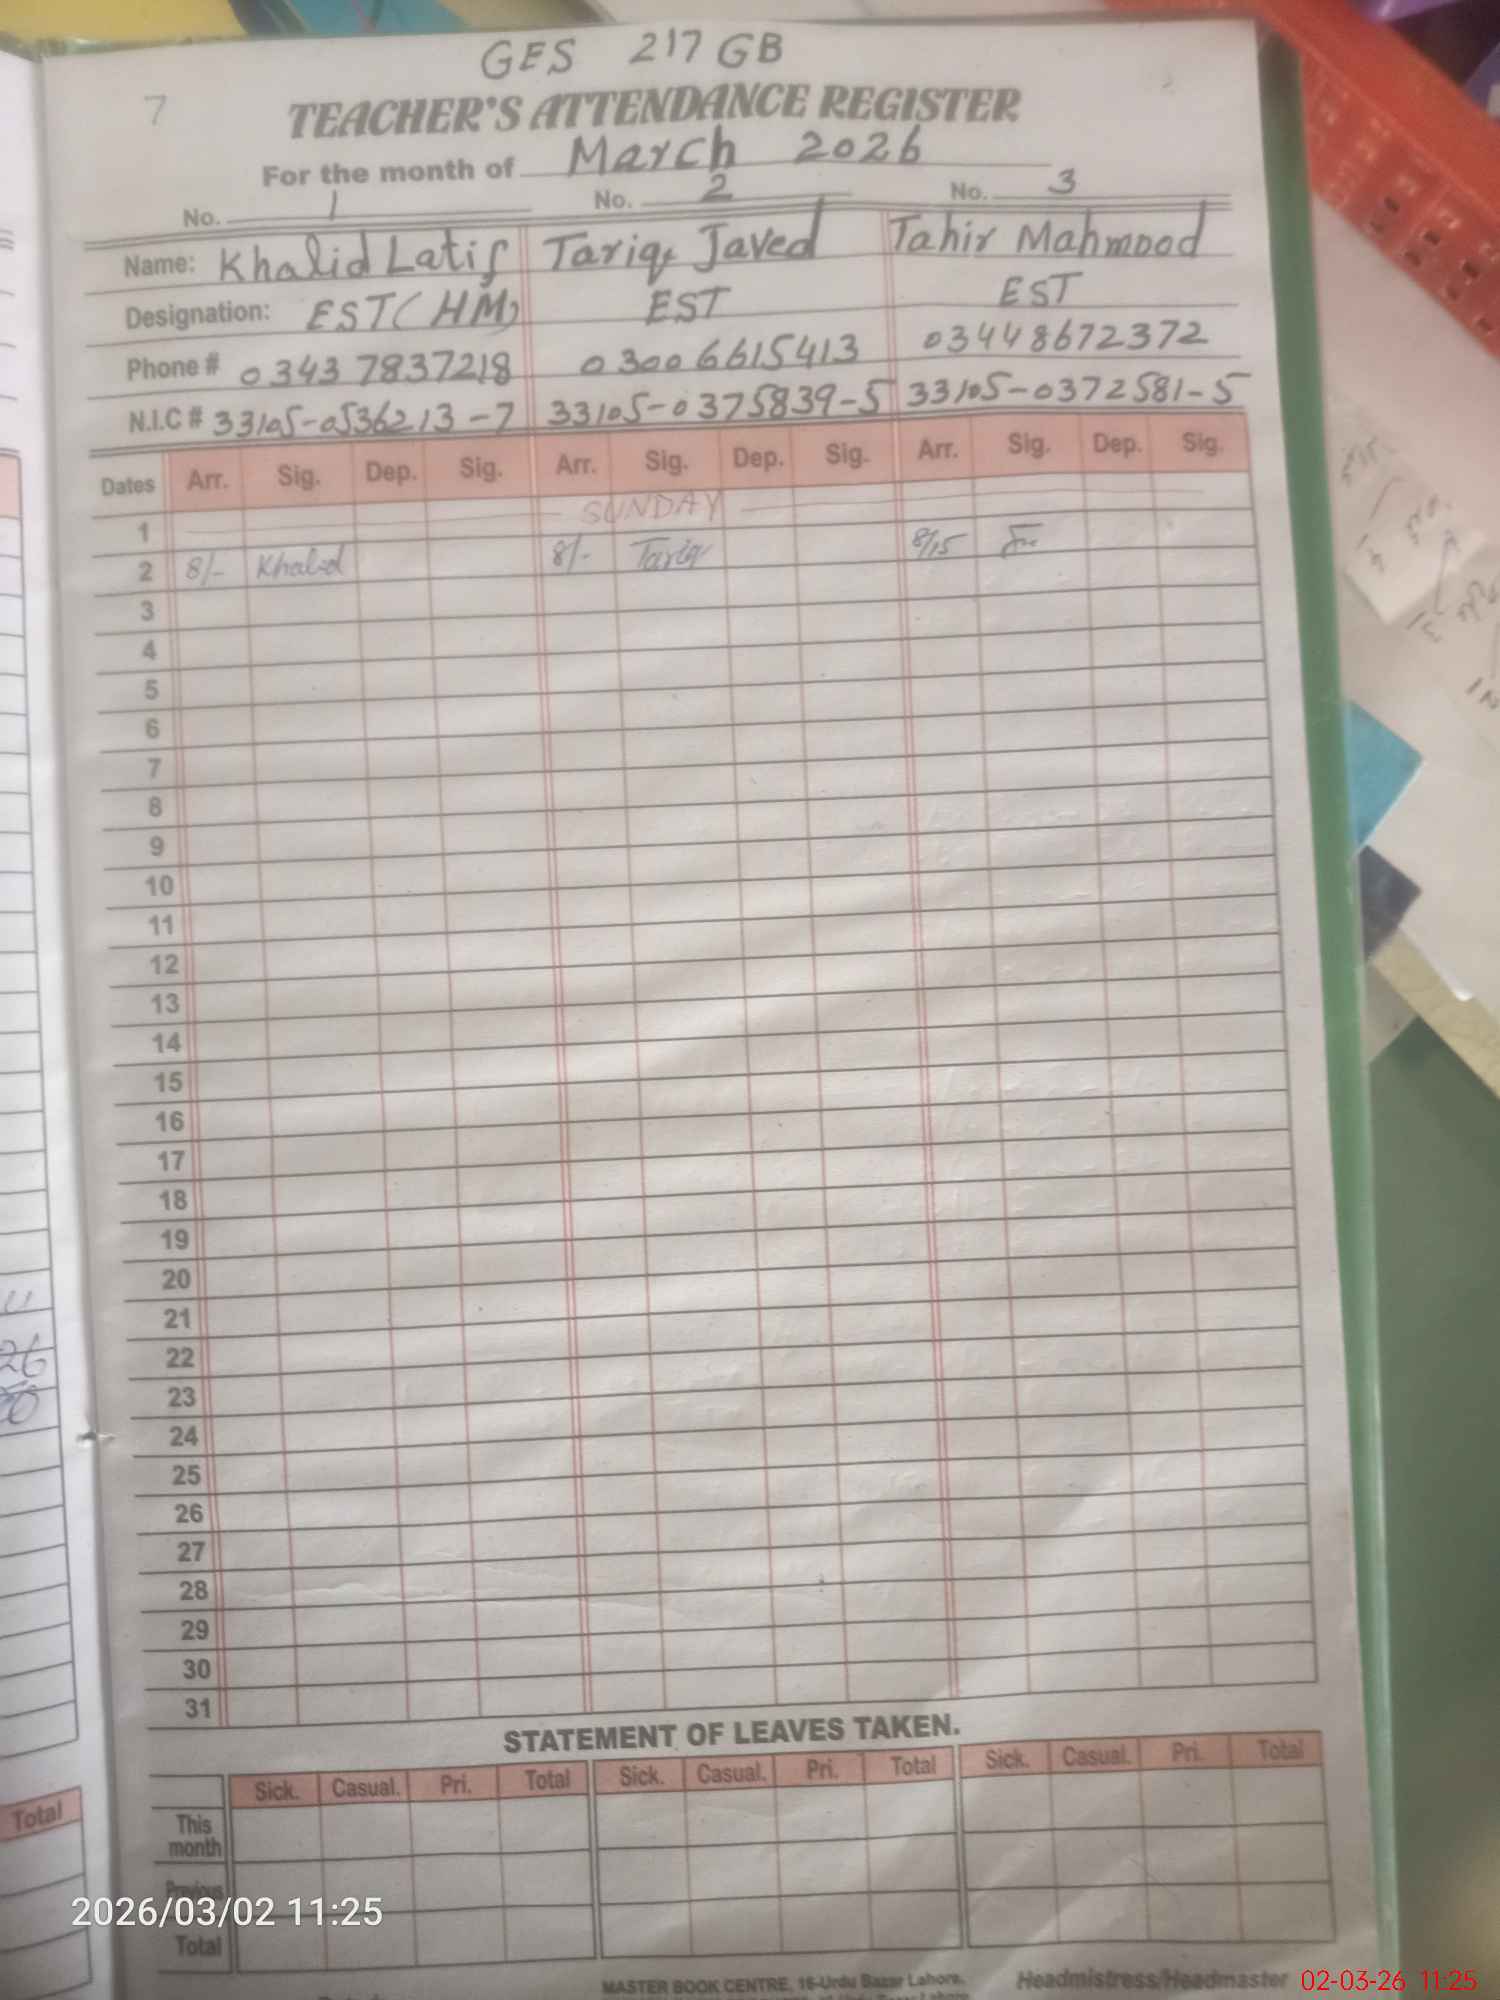 GES 217 GB
7
TEACHER'S ATTENDANCE REGISTER
For the month of March 2026
No. 1 No. 2 No. 3
Name: Khalid Latif Tariq Javed Tahir Mahmood
Designation: EST (HM) EST EST
Phone # 03437837218 03006615413 03448672372
N.I.C # 33105-0536213-7 33105-0375839-5 33105-0372581-5
Dates Arr. Sig. Dep. Sig. Arr. Sig. Dep. Sig. Arr. Sig. Dep. Sig.
1 SUNDAY
2 8/- Khalid 8/- Tariq 8/15
3
4
5
6
7
8
9
10
11
12
13
14
15
16
17
18
19
20
21
22
23
24
25
26
27
28
29
30
31
STATEMENT OF LEAVES TAKEN.
Sick. Casual. Pri. Total Sick. Casual. Pri. Total Sick. Casual. Pri. Total
This
month
Previous
Total
Total
26
MASTER BOOK CENTRE, 16-Urdu Bazar Lahore.
Headmistress/Headmaster
2026/03/02 11:25
02-03-26 11:25